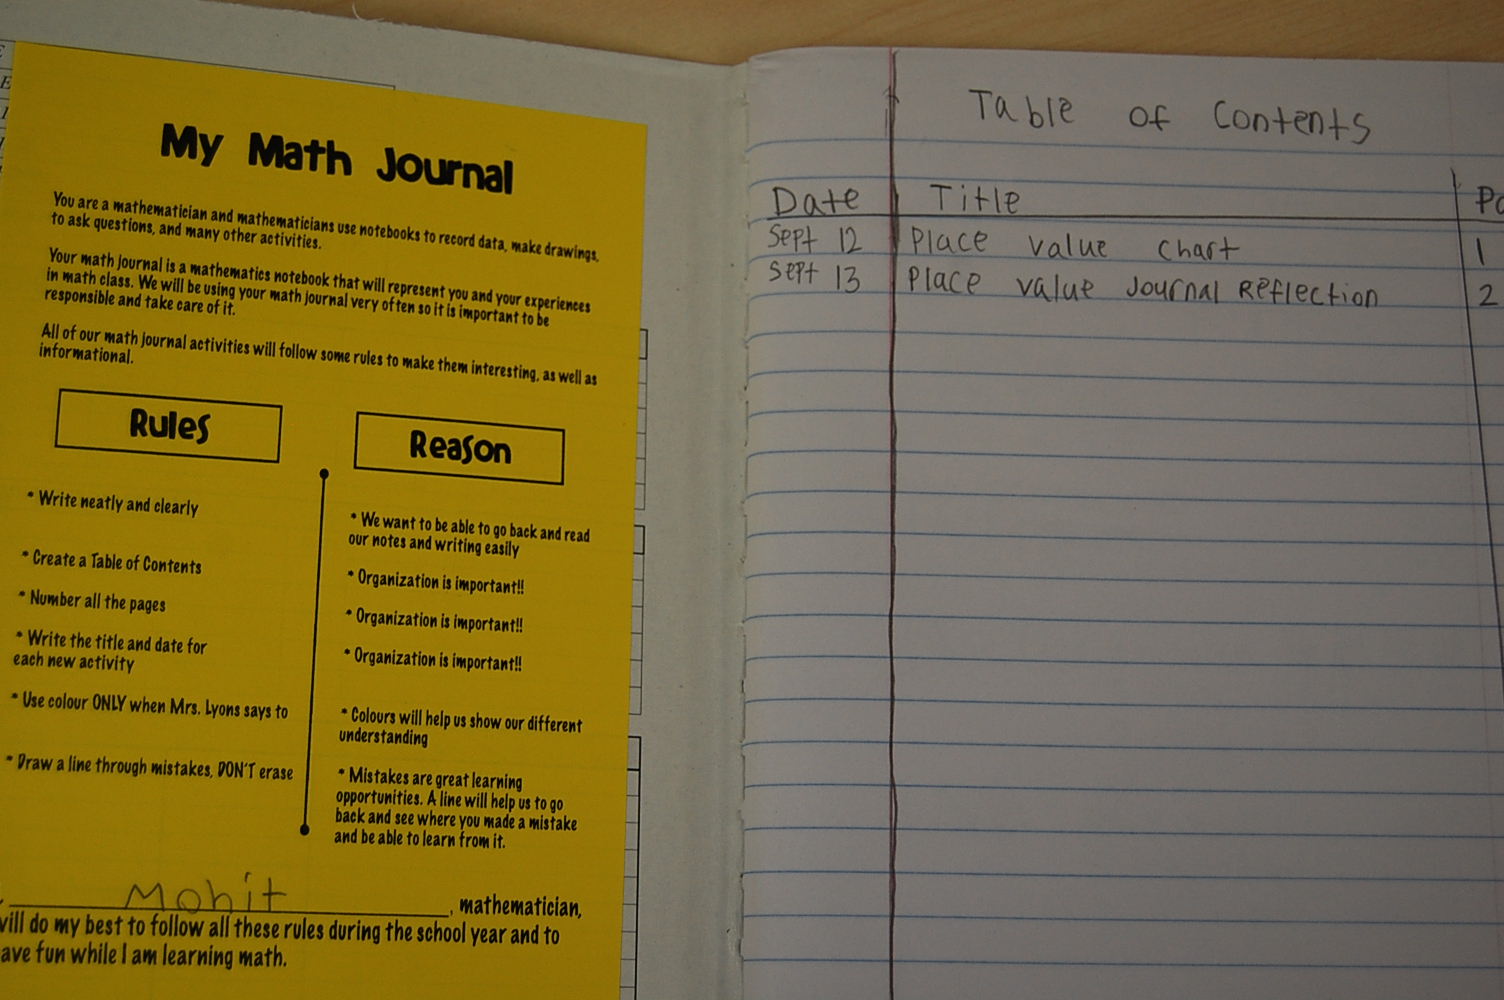 My Math Journal
You are a mathematician and mathematicians use notebooks to record data, make drawings,
to ask questions, and many other activities.
Your math journal is a mathematics notebook that will represent you and your experiences
in math class. We will be using your math journal very often so it is important to be
responsible and take care of it.
All of our math journal activities will follow some rules to make them interesting, as well as
informational.
Rules
* Write neatly and clearly
* Create a Table of Contents
* Number all the pages
* Write the title and date for
each new activity
* Use colour ONLY when Mrs. Lyons says to
* Draw a line through mistakes, DON'T erase
Reason
* We want to be able to go back and read
our notes and writing easily
* Organization is important!!
* Organization is important!!
* Organization is important!!
* Colours will help us show our different
understanding
* Mistakes are great learning
opportunities. A line will help us to go
back and see where you made a mistake
and be able to learn from it.
Mohit, mathematician,
will do my best to follow all these rules during the school year and to
have fun while I am learning math.
Table of Contents
Date Title
Sept 12 Place value chart 1
Sept 13 Place value Journal Reflection 2